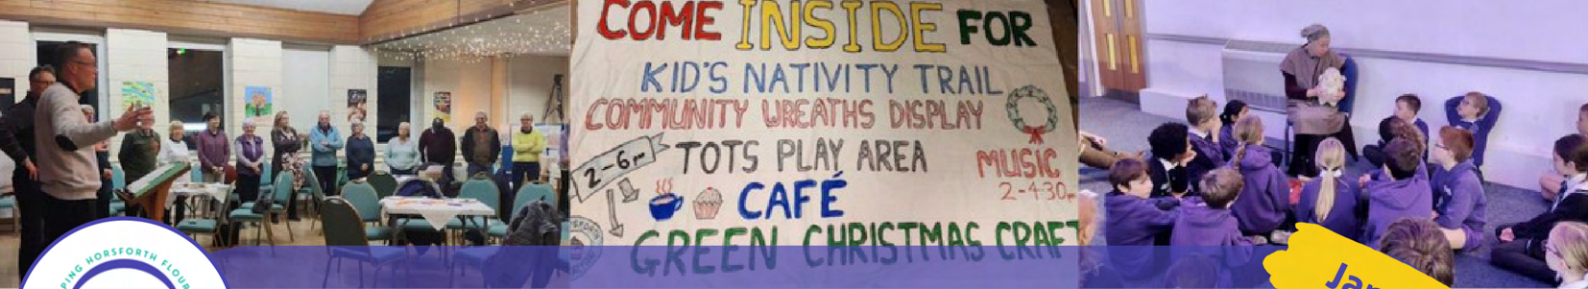 COME INSIDE FOR
KID'S NATIVITY TRAIL
COMMUNITY WREATHS DISPLAY
2-6pm
TOTS PLAY AREA
MUSIC
2-4·30
CAFÉ
GREEN CHRISTMAS CRAF
PING HORSFORTH FLOUR
Jan